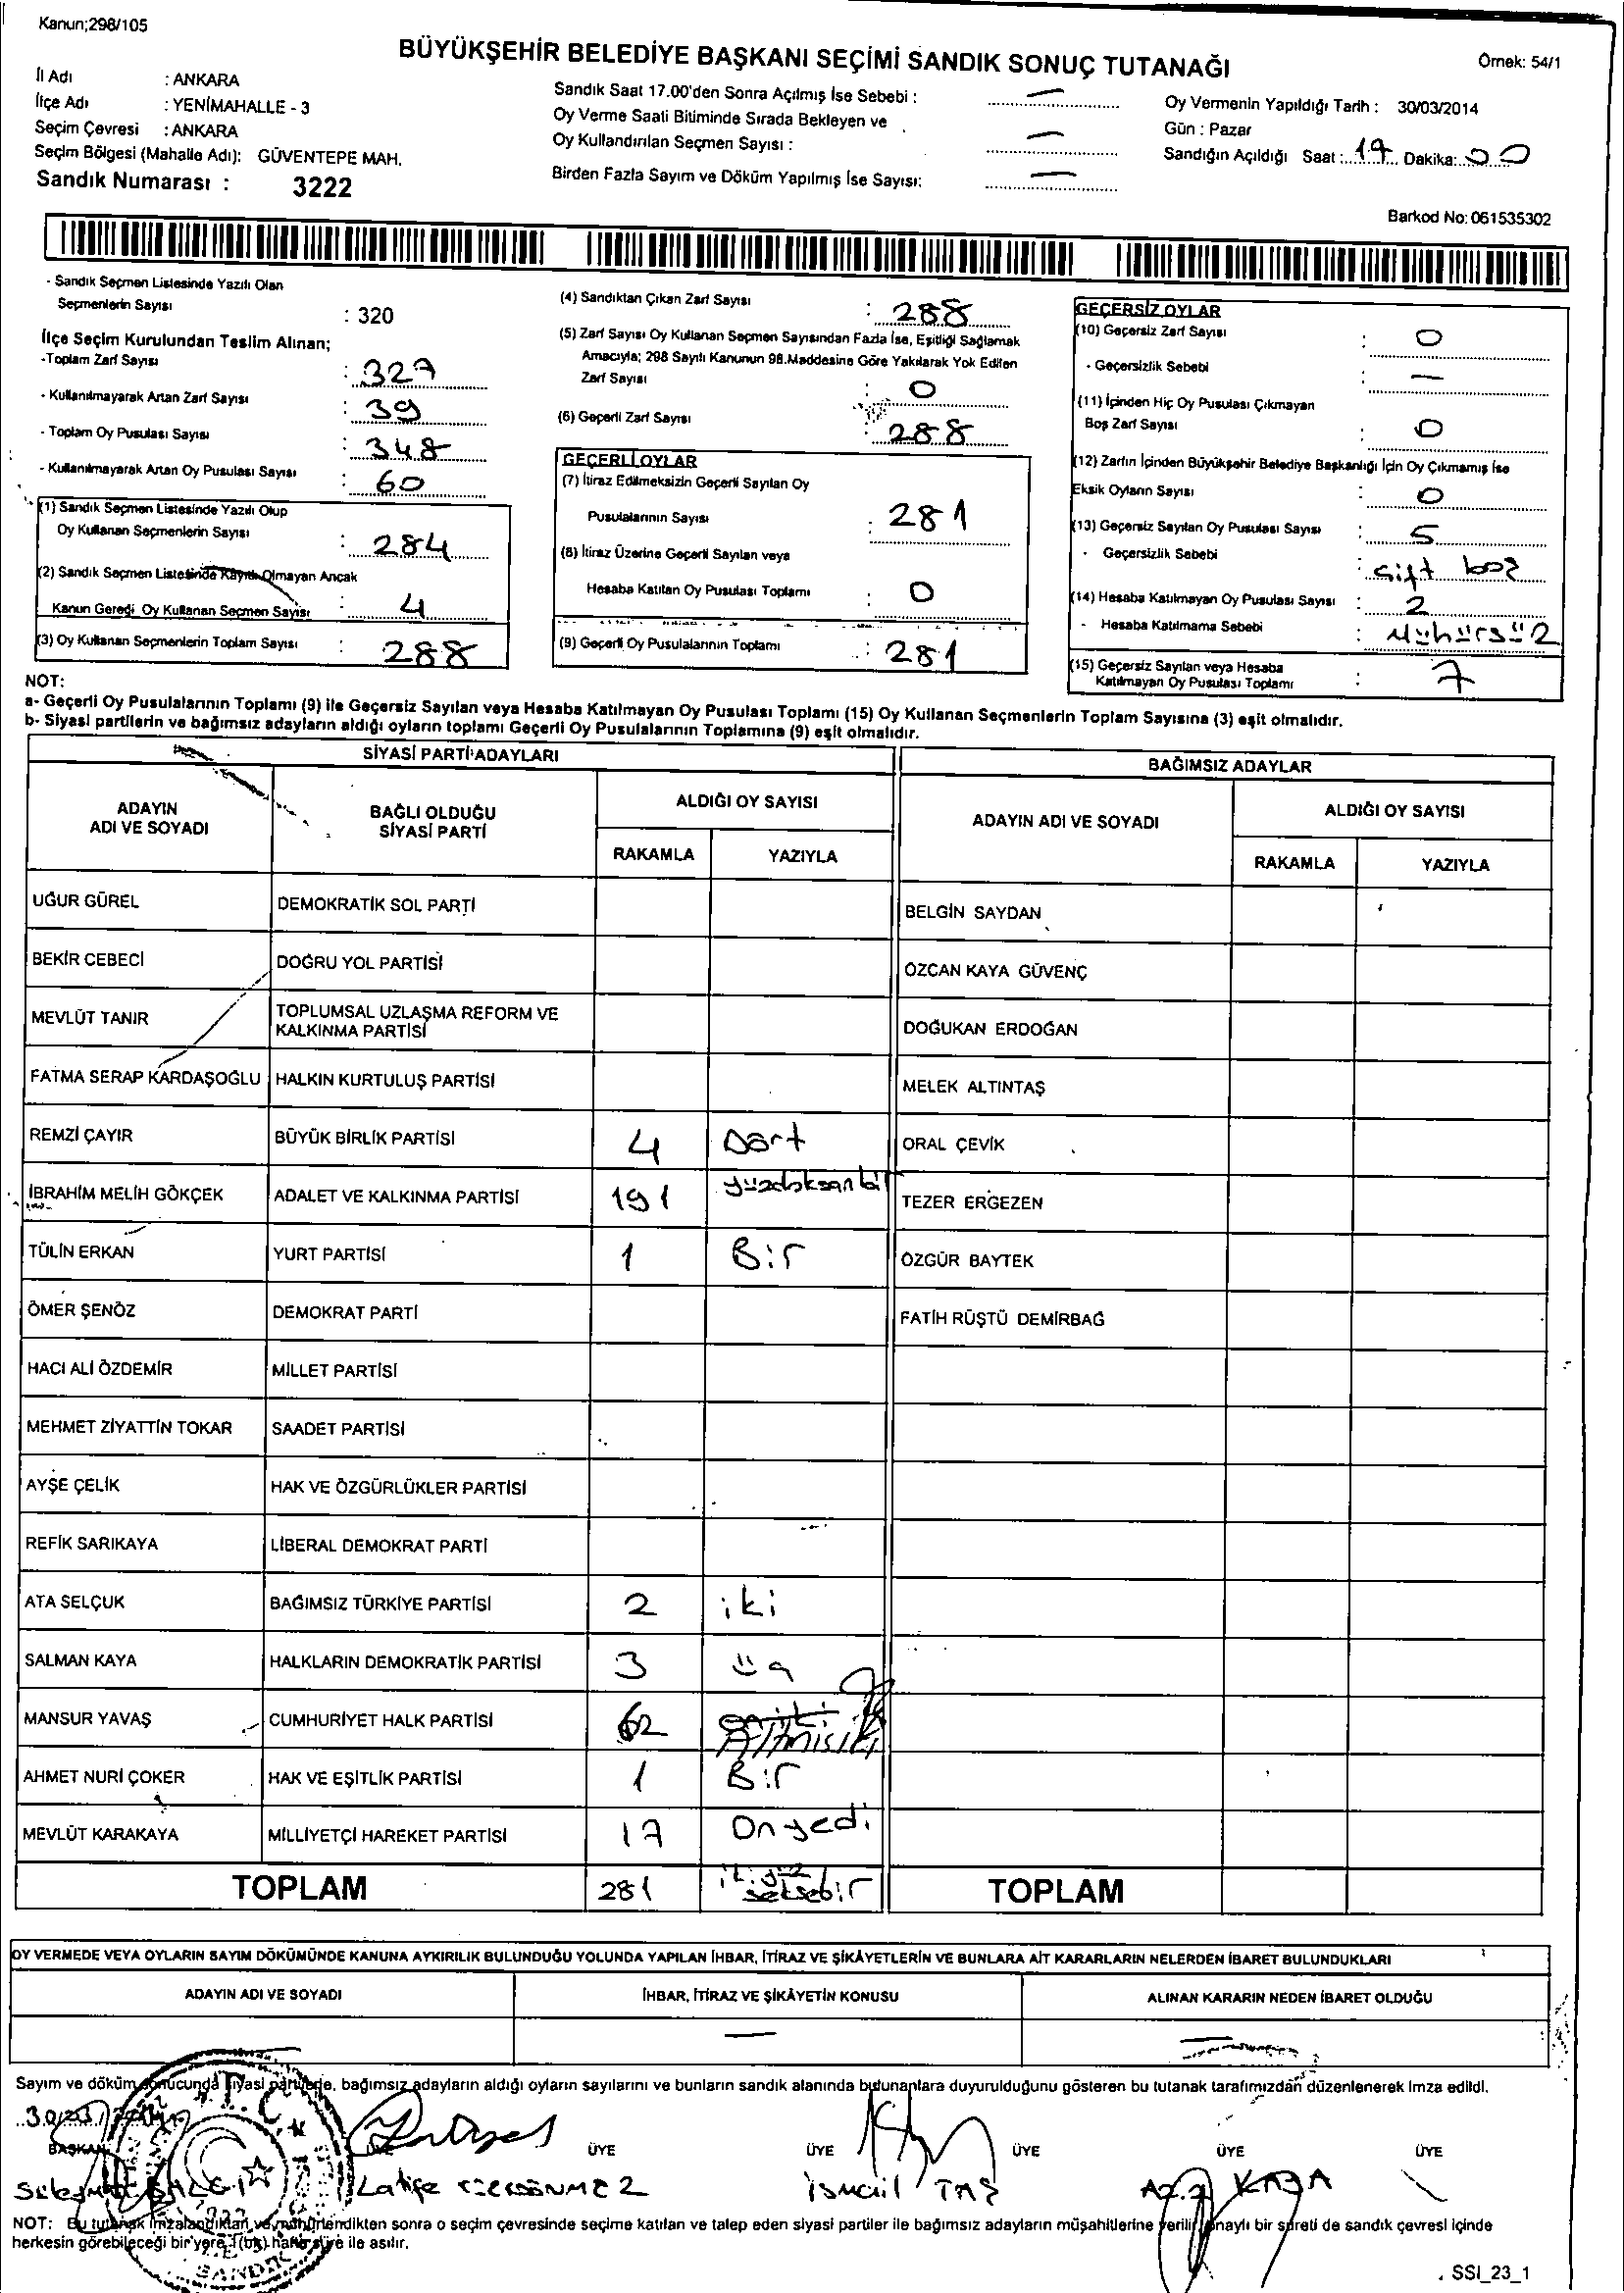 Kanun;298/105
BÜYÜKŞEHİR BELEDİYE BAŞKANI SEÇİMİ SANDIK SONUÇ TUTANAĞI
Örnek: 54/1
İl Adı : ANKARA
İlçe Adı : YENİMAHALLE - 3
Seçim Çevresi : ANKARA
Seçim Bölgesi (Mahalle Adı): GÜVENTEPE MAH.
Sandık Numarası : 3222
Sandık Saat 17.00'den Sonra Açılmış İse Sebebi : —
Oy Verme Saati Bitiminde Sırada Bekleyen ve
Oy Kullandırılan Seçmen Sayısı : —
Birden Fazla Sayım ve Döküm Yapılmış İse Sayısı: —
Oy Vermenin Yapıldığı Tarih : 30/03/2014
Gün : Pazar
Sandığın Açıldığı Saat : 17 Dakika: 00
Barkod No: 061535302
- Sandık Seçmen Listesinde Yazılı Olan
Seçmenlerin Sayısı : 320
İlçe Seçim Kurulundan Teslim Alınan;
-Toplam Zarf Sayısı : 327
- Kullanılmayarak Artan Zarf Sayısı : 39
- Toplam Oy Pusulası Sayısı : 348
- Kullanılmayarak Artan Oy Pusulası Sayısı : 60
(1) Sandık Seçmen Listesinde Yazılı Olup
Oy Kullanan Seçmenlerin Sayısı : 284
(2) Sandık Seçmen Listesinde Kayıtlı Olmayan Ancak
Kanun Gereği Oy Kullanan Seçmen Sayısı : 4
(3) Oy Kullanan Seçmenlerin Toplam Sayısı : 288
(4) Sandıktan Çıkan Zarf Sayısı : 288
(5) Zarf Sayısı Oy Kullanan Seçmen Sayısından Fazla İse, Eşitliği Sağlamak
Amacıyla; 298 Sayılı Kanunun 98.Maddesine Göre Yakılarak Yok Edilen
Zarf Sayısı : 0
(6) Geçerli Zarf Sayısı : 288
GEÇERLİ OYLAR
(7) İtiraz Edilmeksizin Geçerli Sayılan Oy
Pusulalarının Sayısı : 281
(8) İtiraz Üzerine Geçerli Sayılan veya
Hesaba Katılan Oy Pusulası Toplamı : 0
(9) Geçerli Oy Pusulalarının Toplamı : 281
GEÇERSİZ OYLAR
(10) Geçersiz Zarf Sayısı : 0
- Geçersizlik Sebebi : —
(11) İçinden Hiç Oy Pusulası Çıkmayan
Boş Zarf Sayısı : 0
(12) Zarfın İçinden Büyükşehir Belediye Başkanlığı İçin Oy Çıkmamış İse
Eksik Oyların Sayısı : 0
(13) Geçersiz Sayılan Oy Pusulası Sayısı : 5
- Geçersizlik Sebebi : çift boz
(14) Hesaba Katılmayan Oy Pusulası Sayısı : 2
- Hesaba Katılmama Sebebi : Mühürsüz
(15) Geçersiz Sayılan veya Hesaba
Katılmayan Oy Pusulası Toplamı : 7
NOT:
a- Geçerli Oy Pusulalarının Toplamı (9) ile Geçersiz Sayılan veya Hesaba Katılmayan Oy Pusulası Toplamı (15) Oy Kullanan Seçmenlerin Toplam Sayısına (3) eşit olmalıdır.
b- Siyasi partilerin ve bağımsız adayların aldığı oyların toplamı Geçerli Oy Pusulalarının Toplamına (9) eşit olmalıdır.
SİYASİ PARTİ ADAYLARI
BAĞIMSIZ ADAYLAR
ADAYIN ADI VE SOYADI
BAĞLI OLDUĞU SİYASİ PARTİ
ALDIĞI OY SAYISI
RAKAMLA YAZIYLA
ADAYIN ADI VE SOYADI
ALDIĞI OY SAYISI
RAKAMLA YAZIYLA
UĞUR GÜREL DEMOKRATİK SOL PARTİ BELGİN SAYDAN
BEKİR CEBECİ DOĞRU YOL PARTİSİ ÖZCAN KAYA GÜVENÇ
MEVLÜT TANIR TOPLUMSAL UZLAŞMA REFORM VE KALKINMA PARTİSİ DOĞUKAN ERDOĞAN
FATMA SERAP KARDAŞOĞLU HALKIN KURTULUŞ PARTİSİ MELEK ALTINTAŞ
REMZİ ÇAYIR BÜYÜK BİRLİK PARTİSİ 4 Dört ORAL ÇEVİK
İBRAHİM MELİH GÖKÇEK ADALET VE KALKINMA PARTİSİ 191 yüzdoksanbir TEZER ERGEZEN
TÜLİN ERKAN YURT PARTİSİ 1 Bir ÖZGÜR BAYTEK
ÖMER ŞENÖZ DEMOKRAT PARTİ FATİH RÜŞTÜ DEMİRBAĞ
HACI ALİ ÖZDEMİR MİLLET PARTİSİ
MEHMET ZİYATTİN TOKAR SAADET PARTİSİ
AYŞE ÇELİK HAK VE ÖZGÜRLÜKLER PARTİSİ
REFİK SARIKAYA LİBERAL DEMOKRAT PARTİ
ATA SELÇUK BAĞIMSIZ TÜRKİYE PARTİSİ 2 iki
SALMAN KAYA HALKLARIN DEMOKRATİK PARTİSİ 3 üç
MANSUR YAVAŞ CUMHURİYET HALK PARTİSİ 62 Altmışiki
AHMET NURİ ÇOKER HAK VE EŞİTLİK PARTİSİ 1 Bir
MEVLÜT KARAKAYA MİLLİYETÇİ HAREKET PARTİSİ 17 Onyedi
TOPLAM 281 ikiyüz seksebir TOPLAM
OY VERMEDE VEYA OYLARIN SAYIM DÖKÜMÜNDE KANUNA AYKIRILIK BULUNDUĞU YOLUNDA YAPILAN İHBAR, İTİRAZ VE ŞİKÂYETLERİN VE BUNLARA AİT KARARLARIN NELERDEN İBARET BULUNDUKLARI
ADAYIN ADI VE SOYADI İHBAR, İTİRAZ VE ŞİKÂYETİN KONUSU ALINAN KARARIN NEDEN İBARET OLDUĞU
— —
Sayım ve döküm sonucunda siyasi partilerle, bağımsız adayların aldığı oyların sayılarını ve bunların sandık alanında bulunanlara duyurulduğunu gösteren bu tutanak tarafımızdan düzenlenerek imza edildi.
BAŞKAN ÜYE ÜYE ÜYE ÜYE ÜYE ÜYE
Latife İsmail TAŞ KAYA
NOT: Bu tutanak imzalandıktan ve mühürlendikten sonra o seçim çevresinde seçime katılan ve talep eden siyasi partiler ile bağımsız adayların müşahitlerine verilir, onaylı bir sureti de sandık çevresi içinde
herkesin görebileceği bir yere 1 (bir) hafta süre ile asılır.
SSI_23_1